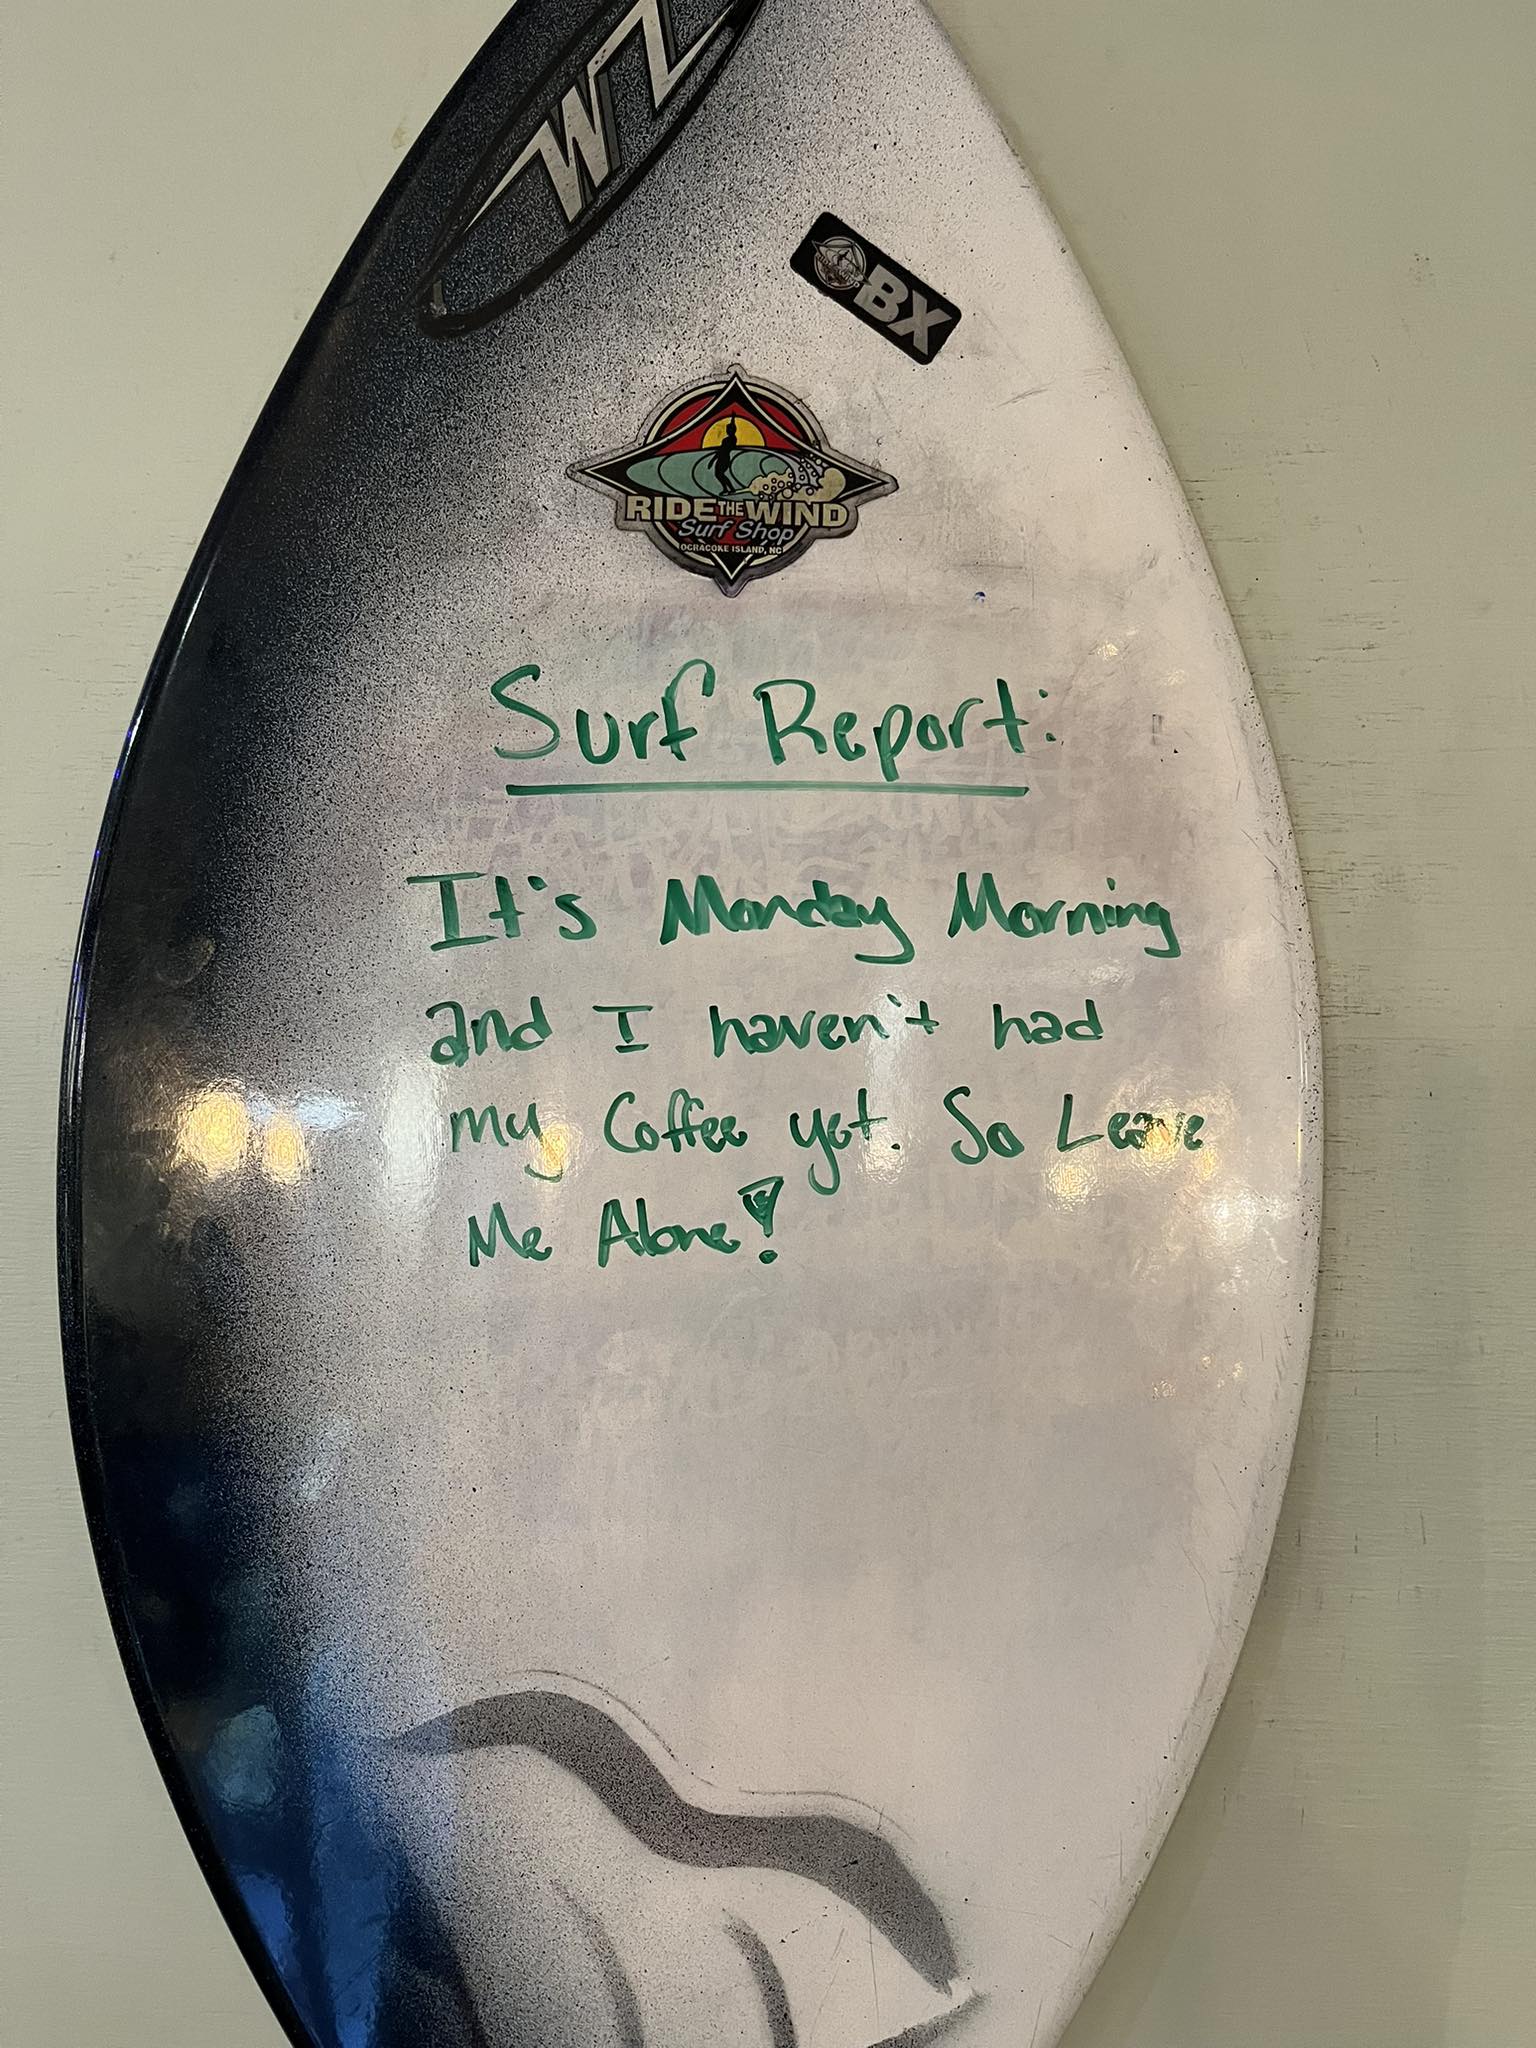 WZ
OBX
RIDE THE WIND
Surf Shop
OCRACOKE ISLAND, NC
Surf Report:
It's Monday Morning
and I haven't had
my Coffee yet. So Leave
Me Alone!